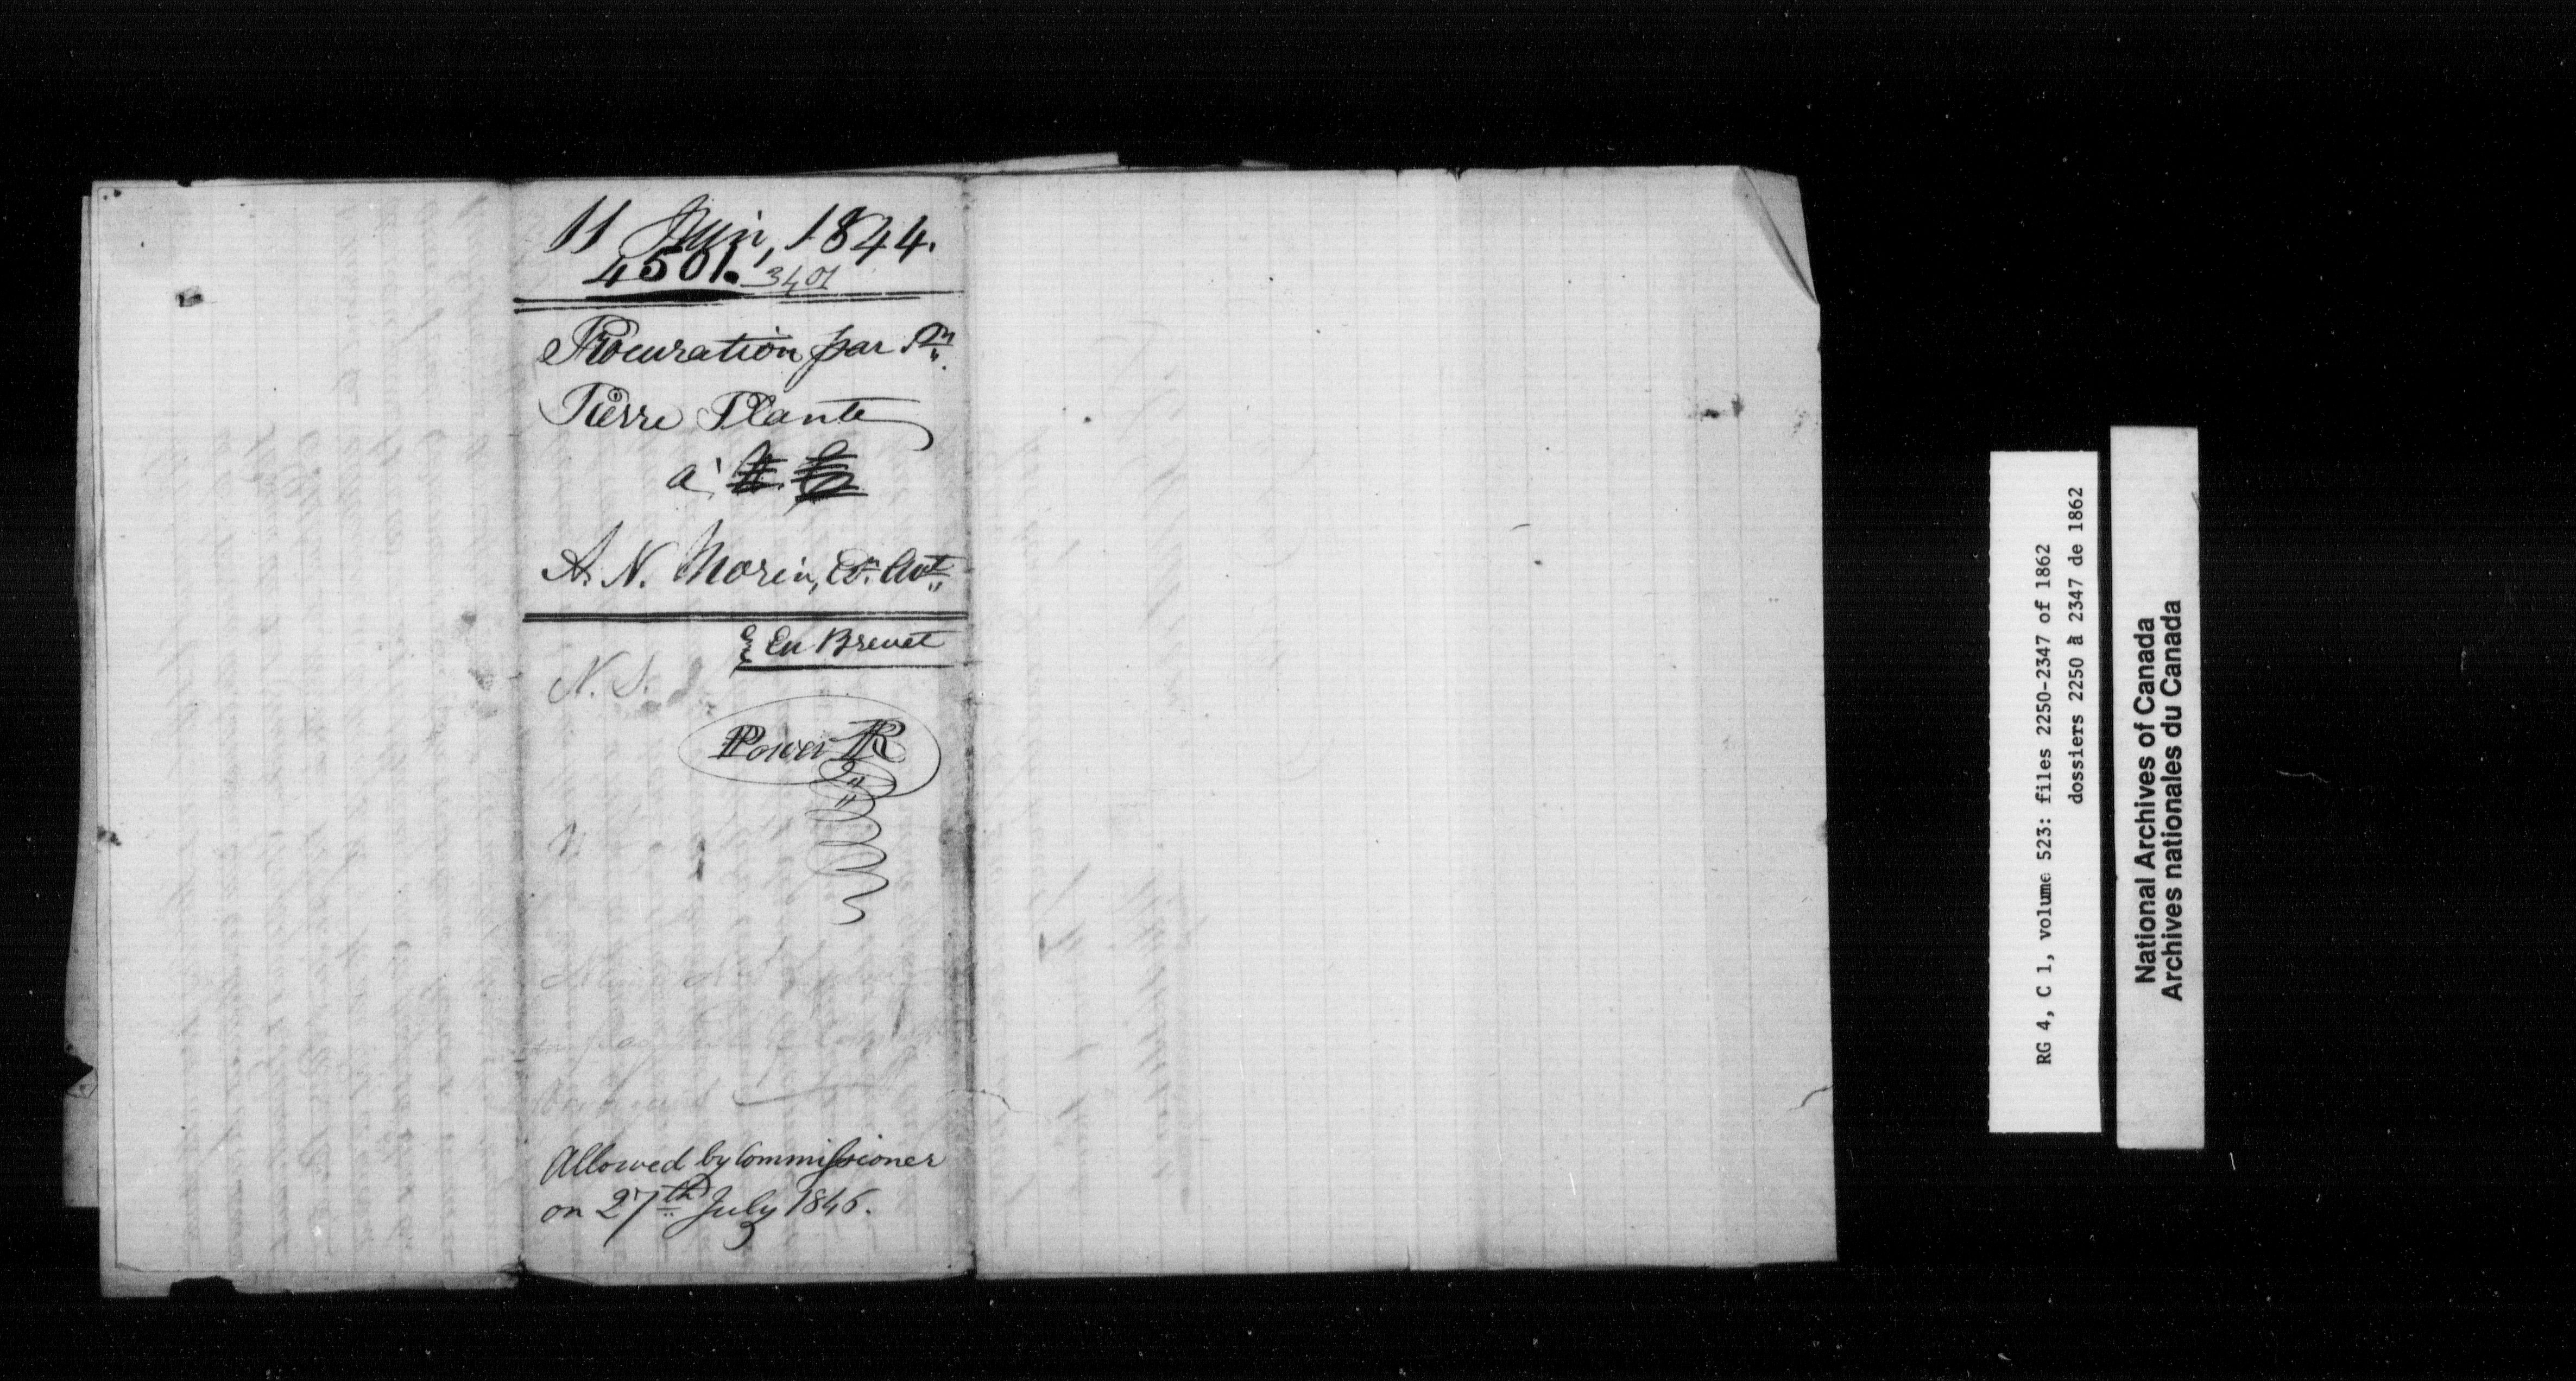 11 Juin, 1844.
4501. 3401
Procuration par
Pierre Plante
à
A. N. Morin,
En Brevet
N. S.
Power
Allowed by Commissioner
on 27th July 1846.
RG 4, C 1, volume 523: files 2250-2347 of 1862
dossiers 2250 à 2347 de 1862
National Archives of Canada
Archives nationales du Canada